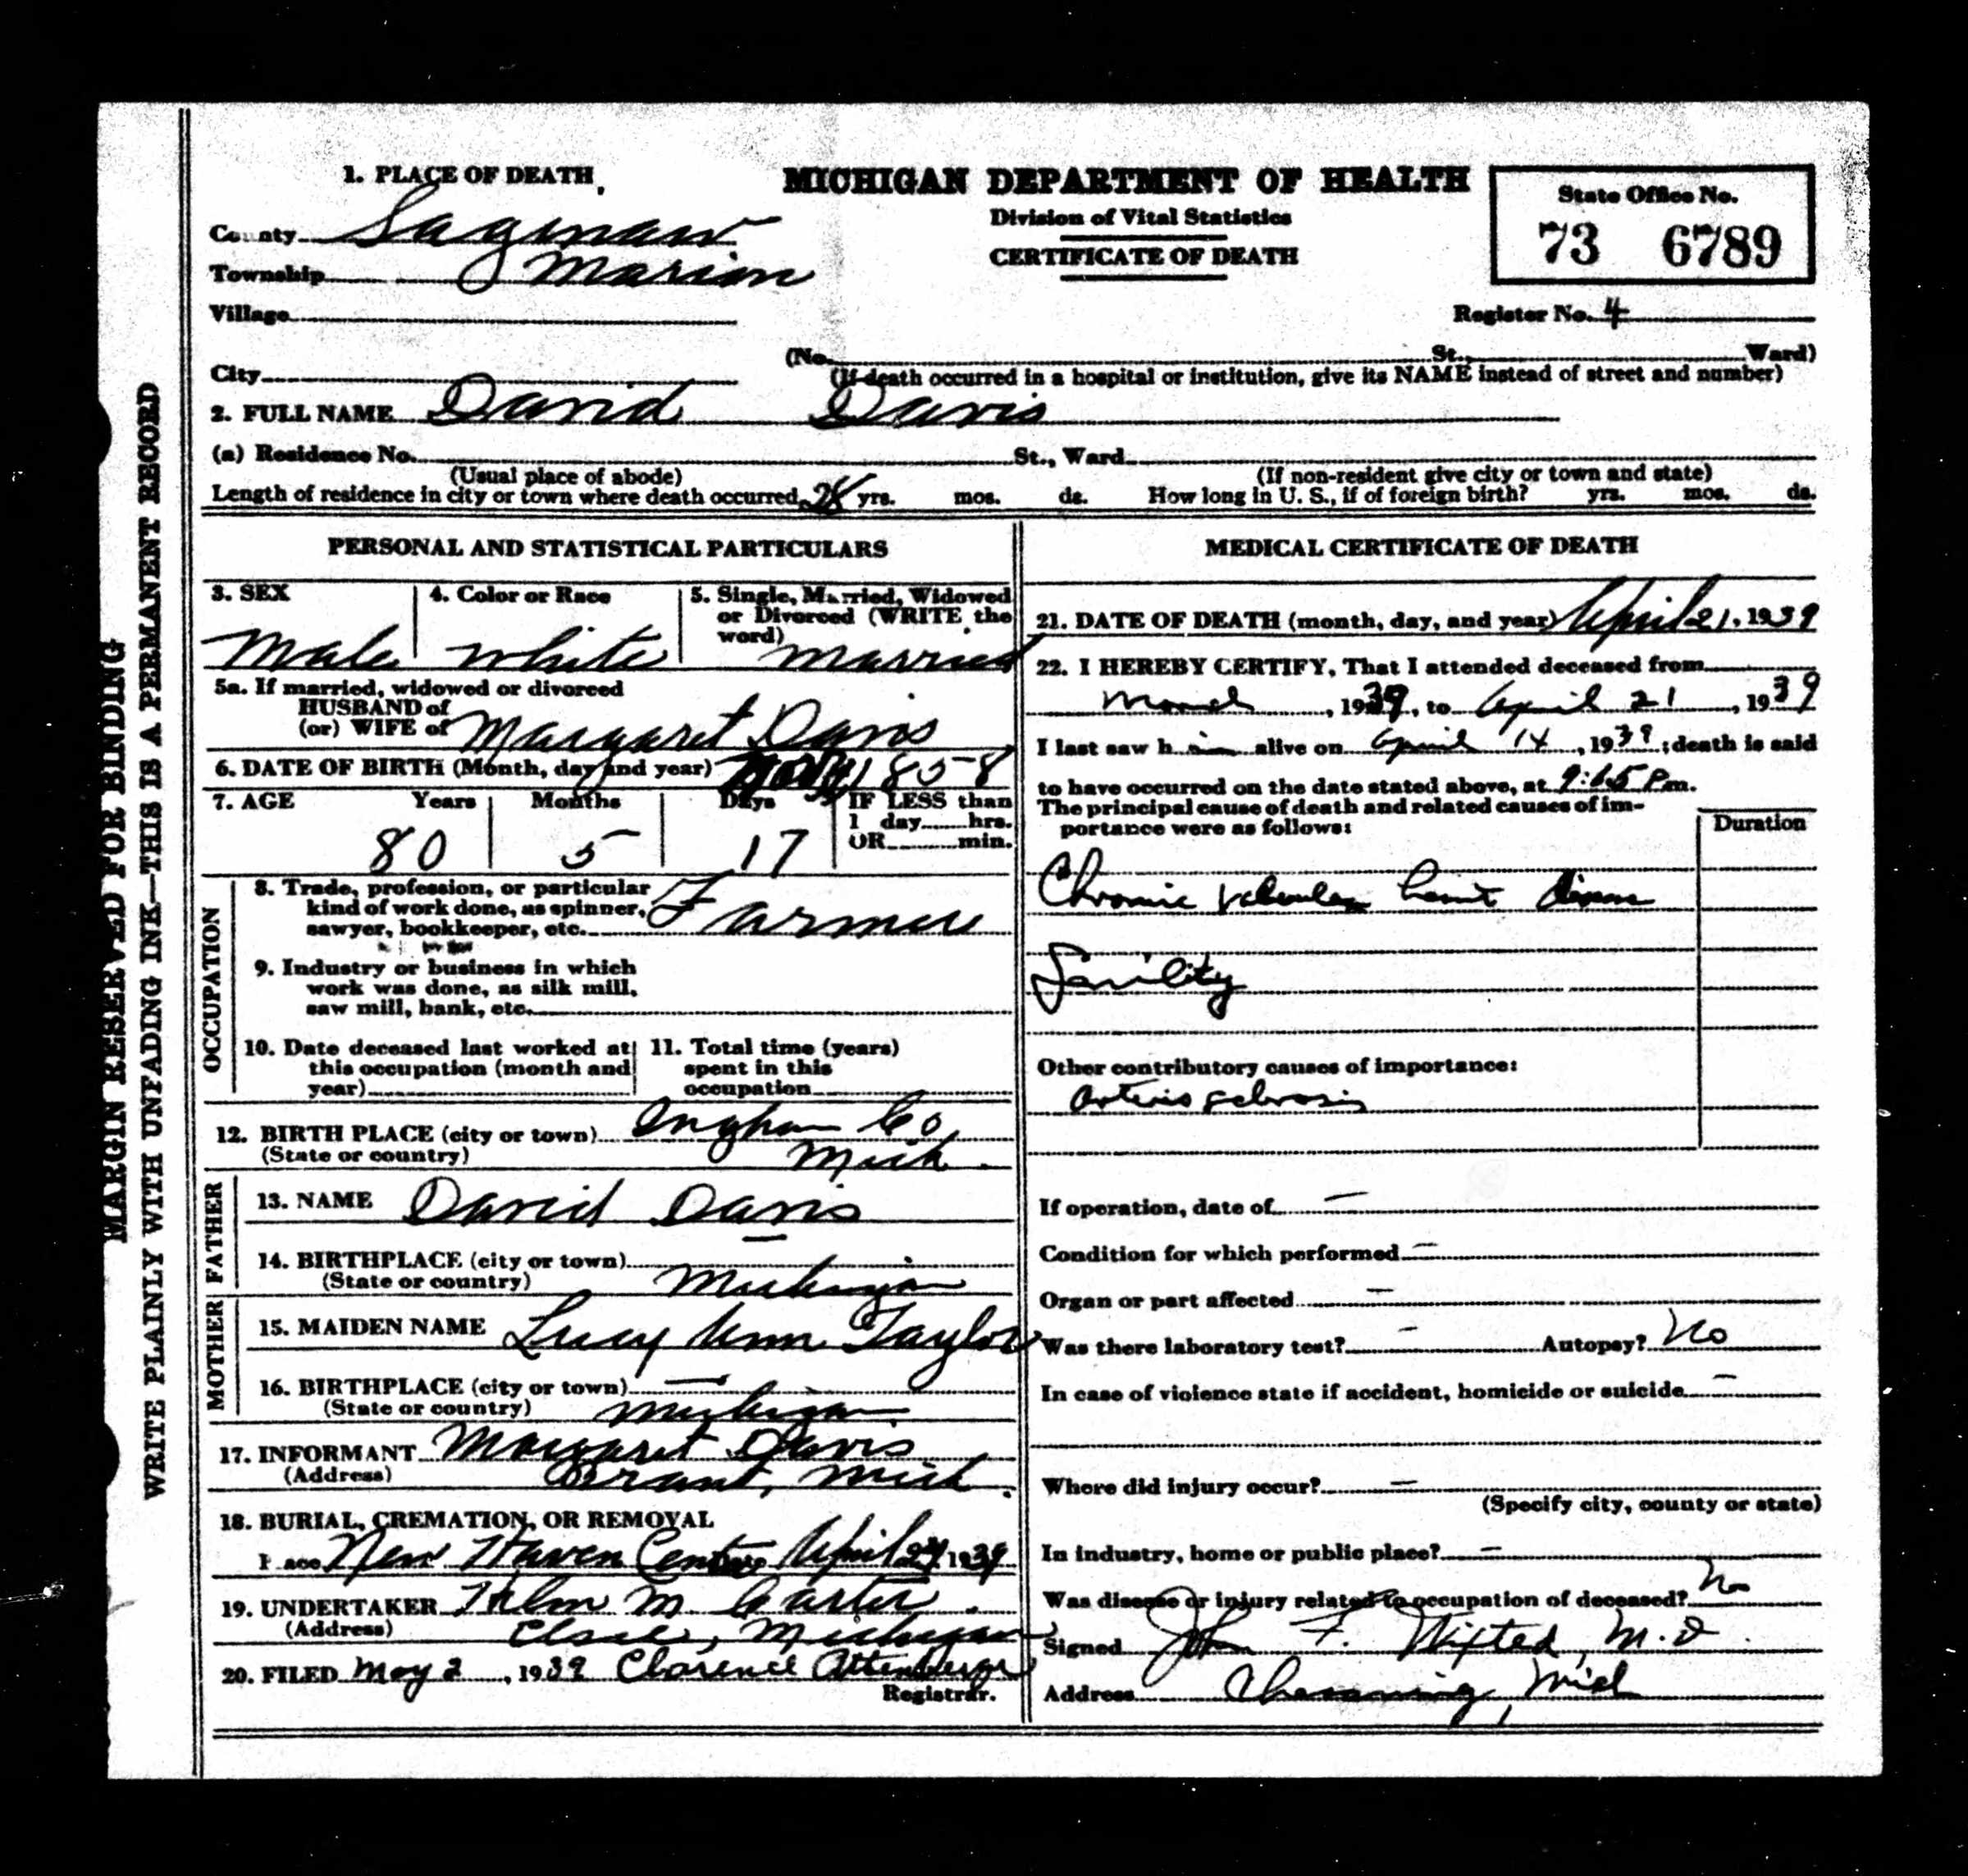 MARGIN RESERVED FOR BINDING
WRITE PLAINLY WITH UNFADING INK—THIS IS A PERMANENT RECORD
MICHIGAN DEPARTMENT OF HEALTH
Division of Vital Statistics
CERTIFICATE OF DEATH
State Office No.
73 6789
Register No. 4
1. PLACE OF DEATH
County Saginaw
Township Marion
Village
City
(No. St., Ward)
(If death occurred in a hospital or institution, give its NAME instead of street and number)
2. FULL NAME David Davis
(a) Residence No. St., Ward
(Usual place of abode) (If non-resident give city or town and state)
Length of residence in city or town where death occurred yrs. mos. ds. How long in U. S., if of foreign birth? yrs. mos. ds.
PERSONAL AND STATISTICAL PARTICULARS
3. SEX
Male
4. Color or Race
White
5. Single, Married, Widowed
or Divorced (WRITE the
word) Married
5a. If married, widowed or divorced
HUSBAND of
(or) WIFE of Margaret Davis
6. DATE OF BIRTH (Month, day and year) 1858
7. AGE Years Months Days IF LESS than
1 day hrs.
OR min.
80 5 17
OCCUPATION
8. Trade, profession, or particular
kind of work done, as spinner,
sawyer, bookkeeper, etc. Farmer
9. Industry or business in which
work was done, as silk mill,
saw mill, bank, etc.
10. Date deceased last worked at
this occupation (month and
year)
11. Total time (years)
spent in this
occupation
12. BIRTH PLACE (city or town) Ingham Co
(State or country) Mich.
FATHER
13. NAME David Davis
14. BIRTHPLACE (city or town)
(State or country) Michigan
MOTHER
15. MAIDEN NAME Lucy Ann Taylor
16. BIRTHPLACE (city or town) —
(State or country) Michigan
17. INFORMANT Margaret Davis
(Address) Brant, Mich.
18. BURIAL, CREMATION, OR REMOVAL
Place New Haven Center April 24 1939
19. UNDERTAKER M. Carter
(Address) Elsie, Michigan
20. FILED May 2, 1939 Clarence
Registrar.
MEDICAL CERTIFICATE OF DEATH
21. DATE OF DEATH (month, day, and year) April 21, 1939
22. I HEREBY CERTIFY, That I attended deceased from
March, 1939, to April 21, 1939
I last saw him alive on April 14, 1939; death is said
to have occurred on the date stated above, at P m.
The principal cause of death and related causes of im-
portance were as follows:
Duration
Chronic valvular heart disease
Senility
Other contributory causes of importance:
Arterio sclerosis
If operation, date of —
Condition for which performed —
Organ or part affected —
Was there laboratory test? — Autopsy? No
In case of violence state if accident, homicide or suicide —
Where did injury occur? —
(Specify city, county or state)
In industry, home or public place? —
Was disease or injury related to occupation of deceased? No
Signed John F. M.D.
Address Chesaning, Mich